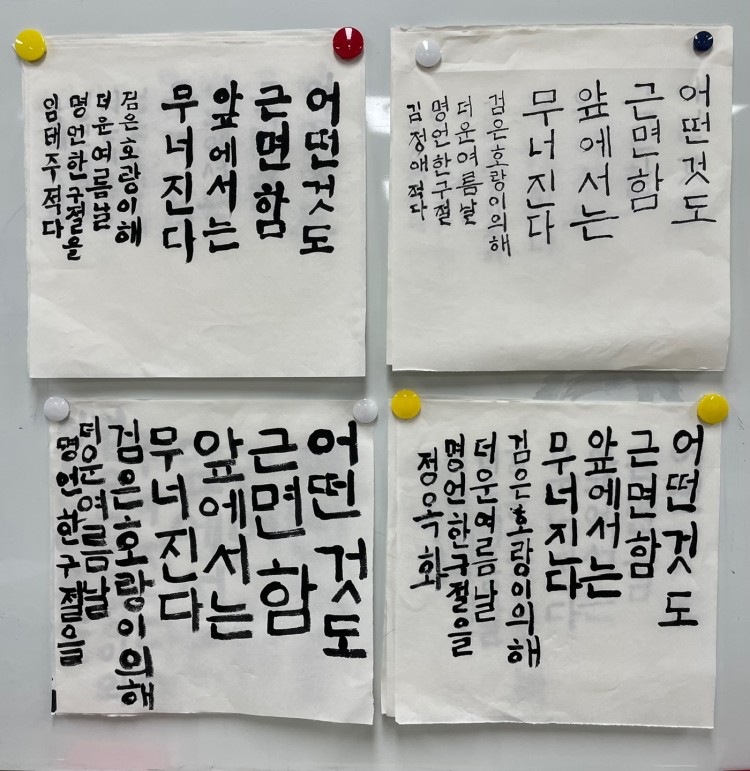 어떤것도
근면함
앞에서는
무너진다
검은호랑이해
더운여름날
명언한구절을
임태주적다
어떤것도
근면함
앞에서는
무너진다
검은호랑이의해
더운여름날
명언한구절
김정애적다
어떤것도
근면함
앞에서는
무너진다
검은호랑이의해
더운여름날
명언한구절을
어떤것도
근면함
앞에서는
무너진다
검은호랑이의해
더운여름날
명언한구절을
정옥화